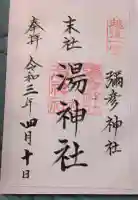 彌彦神社
末社
湯神社
奉拝
令和三年四月十日